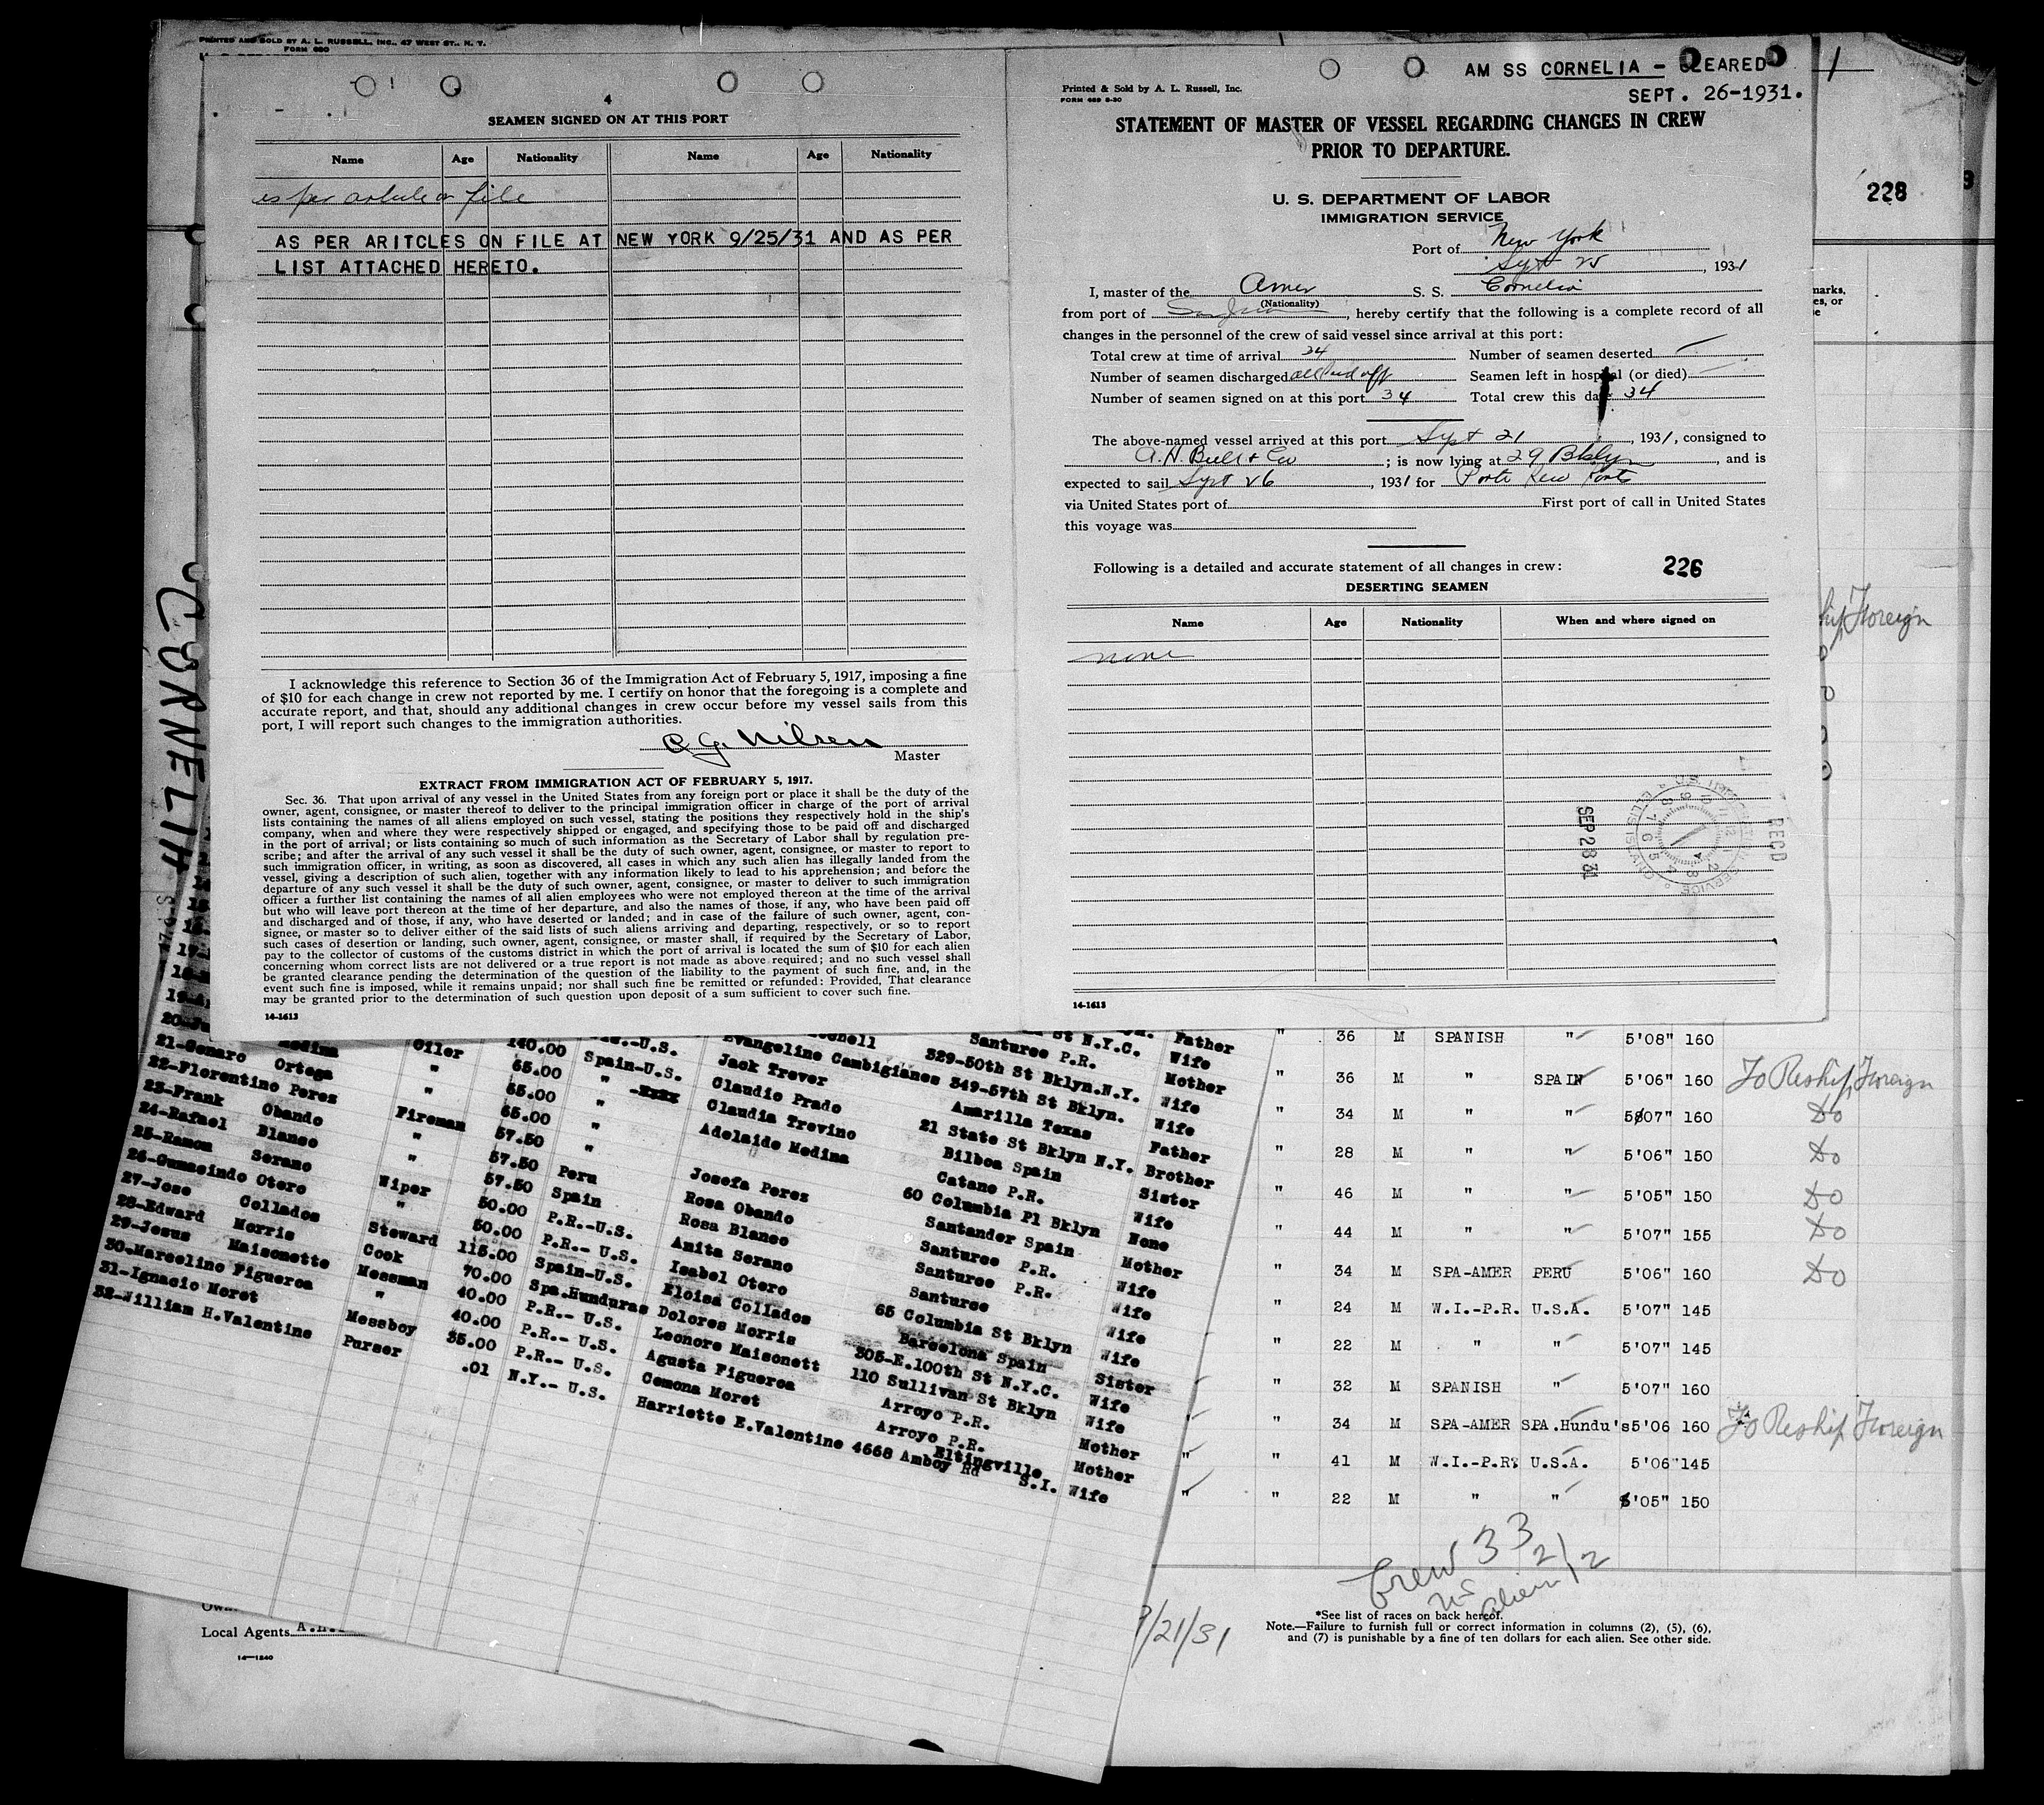 PRINTED AND SOLD BY A. L. RUSSELL, INC., 47 WEST ST., N. Y.
FORM 680
4
SEAMEN SIGNED ON AT THIS PORT
Name Age Nationality Name Age Nationality
as per article on file
AS PER ARITCLES ON FILE AT NEW YORK 9/25/31 AND AS PER
LIST ATTACHED HERETO.
I acknowledge this reference to Section 36 of the Immigration Act of February 5, 1917, imposing a fine
of $10 for each change in crew not reported by me. I certify on honor that the foregoing is a complete and
accurate report, and that, should any additional changes in crew occur before my vessel sails from this
port, I will report such changes to the immigration authorities.
C G Nilsen
Master
EXTRACT FROM IMMIGRATION ACT OF FEBRUARY 5, 1917.
Sec. 36. That upon arrival of any vessel in the United States from any foreign port or place it shall be the duty of the
owner, agent, consignee, or master thereof to deliver to the principal immigration officer in charge of the port of arrival
lists containing the names of all aliens employed on such vessel, stating the positions they respectively hold in the ship's
company, when and where they were respectively shipped or engaged, and specifying those to be paid off and discharged
in the port of arrival; or lists containing so much of such information as the Secretary of Labor shall by regulation pre-
scribe; and after the arrival of any such vessel it shall be the duty of such owner, agent, consignee, or master to report to
such immigration officer, in writing, as soon as discovered, all cases in which any such alien has illegally landed from the
vessel, giving a description of such alien, together with any information likely to lead to his apprehension; and before the
departure of any such vessel it shall be the duty of such owner, agent, consignee, or master to deliver to such immigration
officer a further list containing the names of all alien employees who were not employed thereon at the time of the arrival
but who will leave port thereon at the time of her departure, and also the names of those, if any, who have been paid off
and discharged and of those, if any, who have deserted or landed; and in case of the failure of such owner, agent, con-
signee, or master so to deliver either of the said lists of such aliens arriving and departing, respectively, or so to report
such cases of desertion or landing, such owner, agent, consignee, or master shall, if required by the Secretary of Labor,
pay to the collector of customs of the customs district in which the port of arrival is located the sum of $10 for each alien
concerning whom correct lists are not delivered or a true report is not made as above required; and no such vessel shall
be granted clearance pending the determination of the question of the liability to the payment of such fine, and, in the
event such fine is imposed, while it remains unpaid; nor shall such fine be remitted or refunded: Provided, That clearance
may be granted prior to the determination of such question upon deposit of a sum sufficient to cover such fine.
14-1613
AM SS CORNELIA - CLEARED
SEPT. 26-1931.
Printed & Sold by A. L. Russell, Inc.
FORM 689 8-30
STATEMENT OF MASTER OF VESSEL REGARDING CHANGES IN CREW
PRIOR TO DEPARTURE.
U. S. DEPARTMENT OF LABOR
IMMIGRATION SERVICE
Port of New York
Sept 25, 1931
I, master of the Amer S. S. Cornelia
(Nationality)
from port of San Juan, hereby certify that the following is a complete record of all
changes in the personnel of the crew of said vessel since arrival at this port:
Total crew at time of arrival 34 Number of seamen deserted
Number of seamen discharged all paid off Seamen left in hospital (or died)
Number of seamen signed on at this port 34 Total crew this date 34
The above-named vessel arrived at this port Sept 21, 1931, consigned to
A. H. Bull & Co; is now lying at 29 Bklyn, and is
expected to sail Sept 26, 1931 for Porto Rico Ports
via United States port of First port of call in United States
this voyage was
Following is a detailed and accurate statement of all changes in crew: 226
DESERTING SEAMEN
Name Age Nationality When and where signed on
none
REC'D
SEP 28 31
14-1613
1
228
marks,
es, or
Foreign
CORNELIA
Medina Oiler 140.00
21-Genaro Ortega " 65.00 Spain-U.S. Evangeline Cambigianes 329-50th St Bklyn.N.Y. Mother
22-Florentino Peres " 65.00 " Jack Trever 349-57th St Bklyn. Wife
23-Frank Obando Fireman 65.00 " Claudio Prado Amarilla Texas Wife
24-Rafael Blanco " 57.50 " Claudia Trevino 21 State St Bklyn N.Y. Father
25-Ramon Serano " 57.50 Peru Adelaide Medina Bilboa Spain Brother
26-Gumacindo Otero Wiper 57.50 Spain Josefa Peres Catano P.R. Sister
27-Jose Collados " 50.00 P.R.-U.S. Rosa Obando 60 Columbia Pl Bklyn Wife
28-Edward Morris Steward 50.00 P.R.- U.S. Rosa Blanco Santander Spain None
29-Jesus Maisonette Cook 115.00 Spain-U.S. Anita Serano Santurce P.R. Mother
30-Marcelino Figueroa Messman 70.00 Spa.Hunduras Isabel Otero Santurce P.R. Wife
31-Ignacio Moret " 40.00 P.R.- U.S. Eloisa Collados Santurce Wife
32-William H.Valentine Messboy 40.00 P.R.- U.S. Dolores Morris 65 Columbia St Bklyn Wife
Purser 35.00 P.R.- U.S. Leonore Maisonett Barcelona Spain Wife
.01 N.Y.- U.S. Agusta Figueroa 305-E.100th St N.Y.C. Sister
Cemona Moret 110 Sullivan St Bklyn Wife
Harriette E.Valentine 4668 Amboy Rd Arroyo P.R. Wife
Arroyo P.R. Mother
Eltingville Mother
S.I. Wife
" 36 M SPANISH " 5'08" 160
" 36 M " SPAIN 5'06" 160 To Reship Foreign
" 34 M " " 5'07" 160 Do
" 28 M " " 5'06" 150 Do
" 46 M " " 5'05" 150 Do
" 44 M " " 5'07" 155 Do
" 34 M SPA-AMER PERU 5'06" 160 Do
" 24 M W.I.-P.R. U.S.A. 5'07" 145
" 22 M " " 5'07" 145
" 32 M SPANISH " 5'07" 160
" 34 M SPA-AMER SPA.Hundu's 5'06 160 To Reship Foreign
" " 41 M W.I.-P.R. U.S.A. 5'06" 145
" " 22 M " " 5'05" 150
Crew 33
Alien 12
Local Agents
14-1240
9/21/31
*See list of races on back hereof.
Note.—Failure to furnish full or correct information in columns (2), (5), (6),
and (7) is punishable by a fine of ten dollars for each alien. See other side.